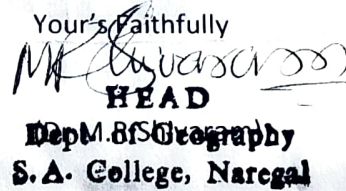 Your's Faithfully
HEAD
(Dr. M.R.Shivaram)
Dept of Geography
S. A. College, Naregal